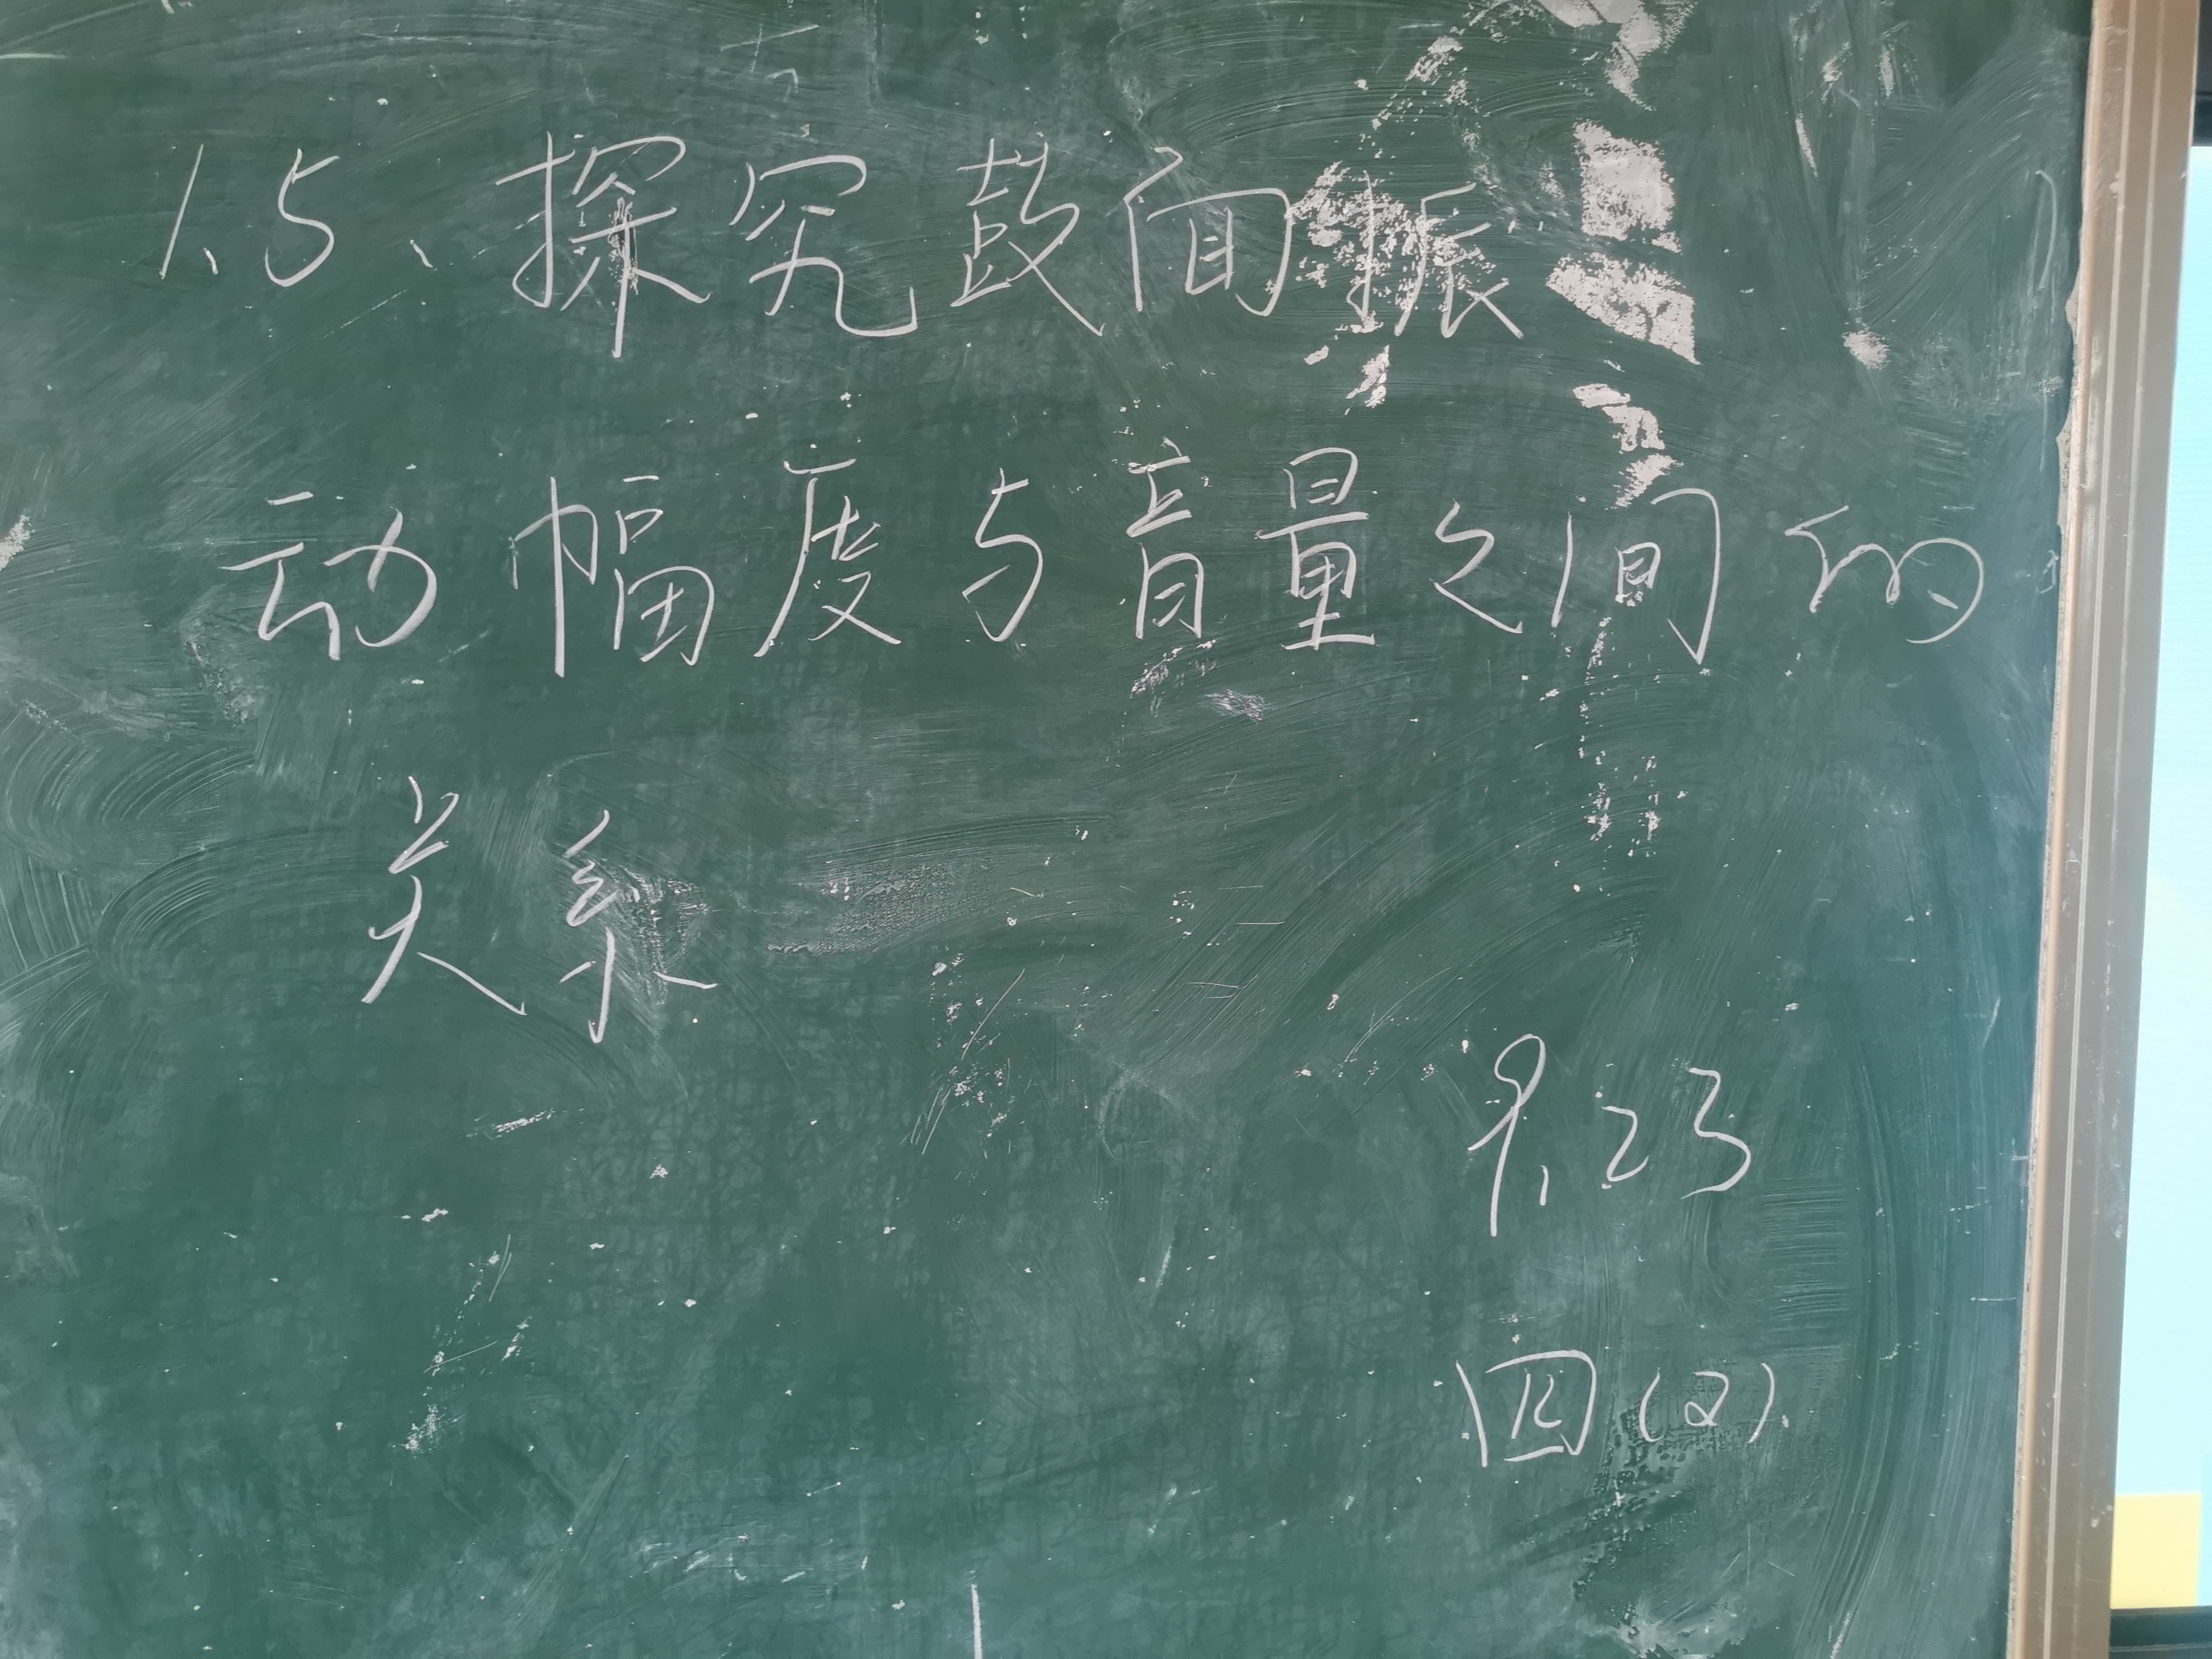 1.5、探究鼓面振
动幅度与音量之间的
关系
9.23
四(2)